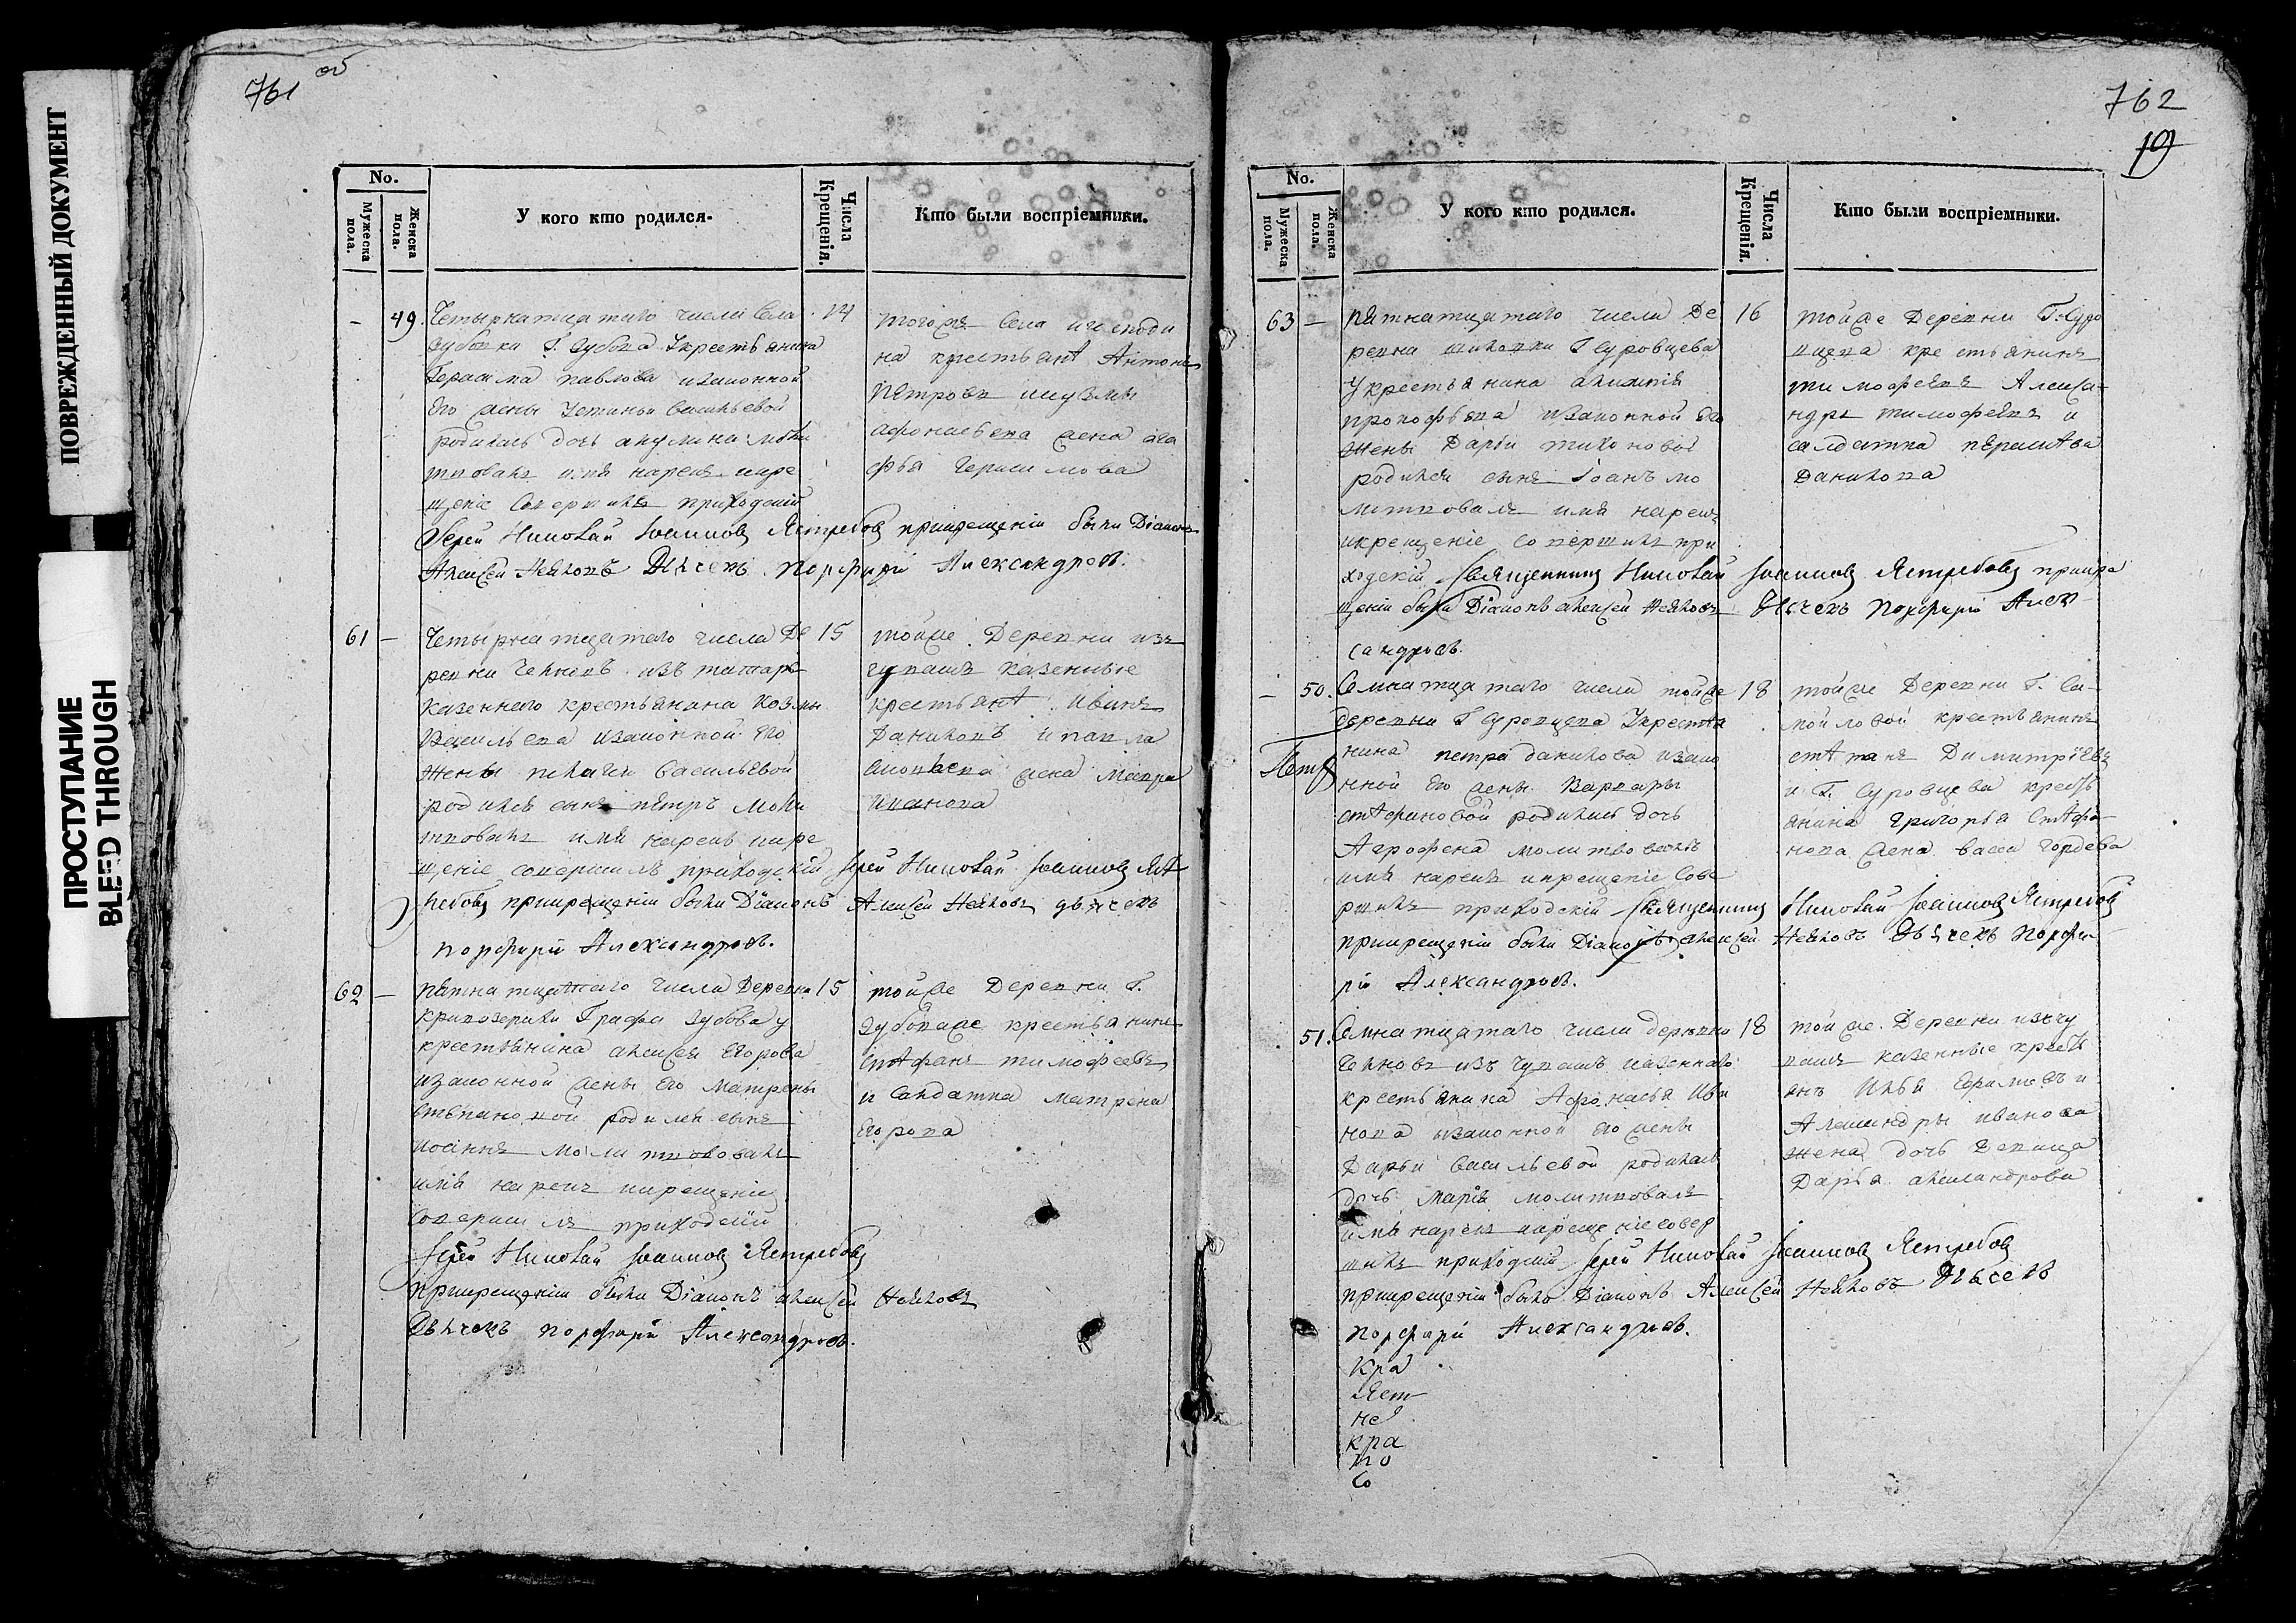 ПОВРЕЖДЕННЫЙ ДОКУМЕНТ
ПРОСТУПАНИЕ
BLEED THROUGH
761 об
No.
Мужеска пола.
Женска пола.
У кого кто родился.
Числа Крещенія.
Кто были воспріемники.
— 49. Четырнатцатаго числа Села 14
Зубовки Г. Зубова Укрестьянина
Герасима павлова изаконной
Его жены Устиньи васильевой
родилась дочь акулина моли
твовалъ имя нарекъ икре
щеніе Совершилъ приходскій
Іерей Николай Іоанновъ Ястребовъ прикрещеніи были Діаконъ
Алексей Діячекъ порфирій Александровъ.
тогоже Села игосподи
на крестьянѣ Антонъ
Петровъ икузмы
афонасьева жена ага
фья Герасимова
61 — Четырнатцатаго числа Де 15
ревни изъ татаръ
казеннаго крестьянина козмы
Васильева изаконной Его
жены пелагеи васильевой
родился сынъ пѣтръ моли
твовалъ имя нарекъ икре
щеніе совершилъ приходскій Іерей Николай Іоанновъ Яст
ребовъ прикрещеніи были Діаконъ Алексей дьячекъ
порфирій Александровъ.
тойже Деревни изъ
чувашъ казенные
крестьянѣ Иванъ
Даниловъ ипавла
жена Мавра
Иванова
62 — пятнатцатаго числа Деревни 15
Кривозерки Графа Зубова у
крестьянина алексея Егорова
изаконной жены Его Матрены
степановой родился сынъ
молитвовалъ
имя нарекъ икрещеніе
Совершилъ приходскій
Іерей Николай Іоанновъ Ястребовъ
прикрещеніи были Діаконъ алексей
Дьячекъ порфирій Александровъ.
тойже Деревни Г.
Зубоваже крестьянинъ
стѣфанъ тимофеевъ
и Салдатка матрена
Егорова
762
19
No.
Мужеска пола.
Женска пола.
У кого кто родился.
Числа Крещенія.
Кто были воспріемники.
63 — пятнатцатаго числа Де 16
ревни Г Суровцева
Укрестьянина
прокофьева изаконной Его
жены Дарьи тихоновой
родился сынъ Іоанъ мо
литвовалъ имя нарекъ
икрещеніе совершилъ при
ходскій Священникъ Николай Іоанновъ Ястребовъ прикре
щеніи были Діаконъ алексей Дьячекъ порфирій Алек
сандровъ.
тойже Деревни Г. Суро
вцева крестьянинъ
тимофѣевъ Алекса-
ндръ тимофѣевъ и
салдатка
Данилова
— 50. Семнатцатаго числа тойже 18
деревни Г Суровцева Укрестья
нина петра данилова изако
нной Его жены Варвары
стѣфановой родилась дочь
Агрофена молитвовалъ
имя нарекъ икрещеніе Сове
ршилъ приходскій Священникъ Николай Іоанновъ Ястребовъ
прикрещеніи были Діаконъ алексей Дьячекъ порфи
рій Александровъ.
тойже Деревни Г. Са-
мойловой крестьянинъ
Димитріевъ
и Г. Суровцева кресть
янина Григорья стѣфа
нова жена васса гордева
51. Семнатцатаго числа деревни 18
изъ Чувашъ казеннаго
крестьянина Афонасья Ива
нова изаконной Его жены
Дарьи васильевой родилась
дочь марія молитвовалъ
имя нарекъ икрещеніе совер
шилъ приходскій Іерей Николай Іоанновъ Ястребовъ
прикрещеніи были Діаконъ Алексей Дьячекъ
порфирій Александровъ.
тойже Деревни изъ чу
вашъ казенные кресть
янъ Илья Ефимовъ и
Александры иванова
жена дочь Девица
Дарья александрова
Кра
Яст
не
кра
по
Со